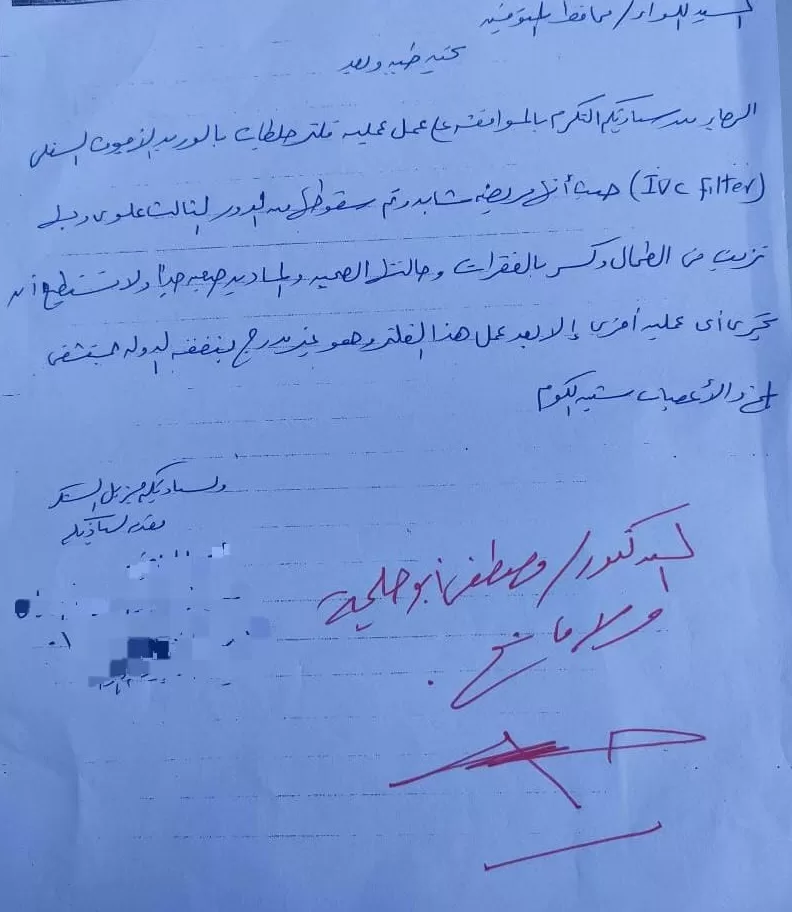 السيد اللواء / محافظ المنوفية
تحية طيبة وبعد
الرجاء من سيادتكم التكرم بالموافقة على عمل عملية فلتر جلطات بالوريد الأجوف السفلى
(IVC filter) حيث أننى مريضة شابة وتم سقوطى من الدور الثالث علوى وبى
نزيف فى الطحال وكسر بالفقرات وحالتى الصحية والمادية صعبة جداً ولا نستطيع أن
تجرى أى عملية أخرى إلا بعد عمل هذا الفلتر وهو غير مدرج بنفقة الدولة بمستشفى
المخ والأعصاب شبين الكوم
ولسيادتكم جزيل الشكر
مقدمه لسيادتكم
السيد الدكتور / مصطفى أبو حليمة
ولا مانع